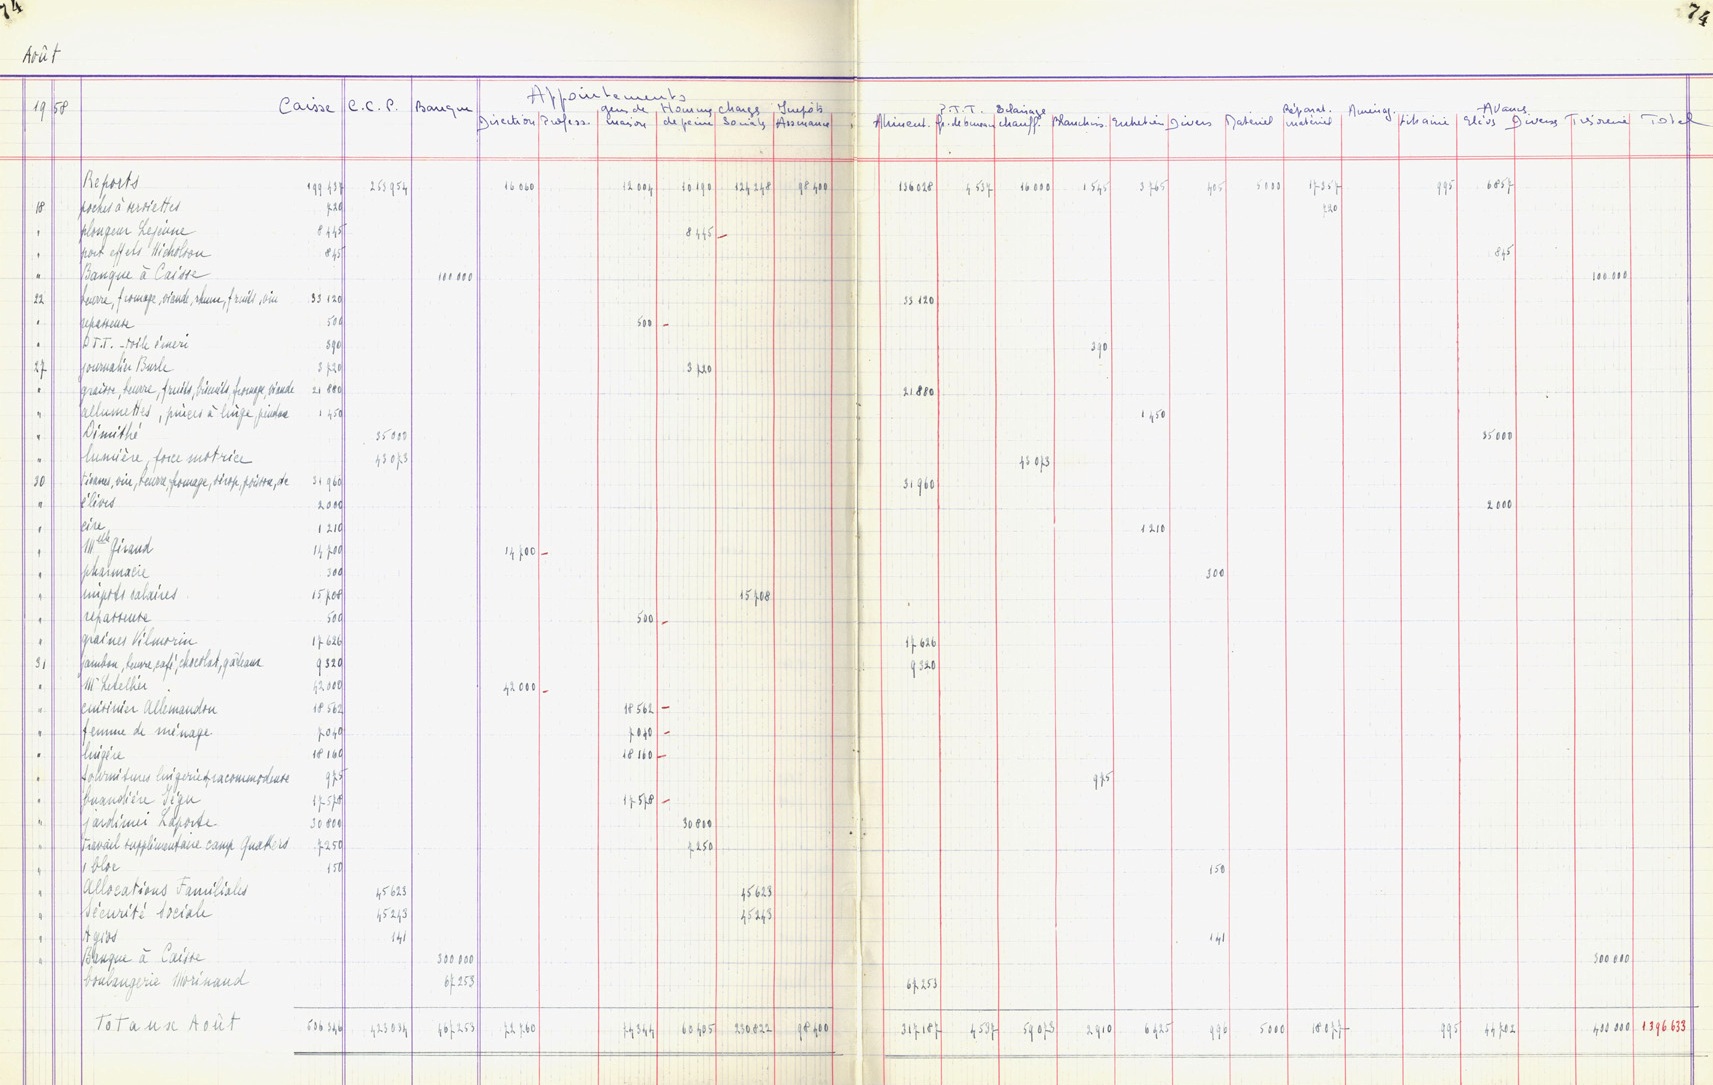 74
74
Août
19 58 Caisse C.C.P. Banque Appointements Direction Profess. gens de maison Homme de peine charges Sociales Impôts Assurance Aliment. P.T.T. fr. de bureau Eclairage chauff. Blanchis. Entretien Divers Matériel Réparat. matériel Aménag. Librairie Avances Elèves Divers Trésorerie Total
Reports 199 437 253 954 16 060 12 004 10 190 124 248 98 400 136 028 4 537 16 000 1 545 3 765 405 5 000 17 357 995 6 857
18 poches à serviettes 720 720
" plongeur Lejeune 8 445 8 445
" port effets Nicholson 845 845
" Banque à Caisse 100 000 100 000
22 beurre, fromage, viande, rhum, fruits, vin 33 120 33 120
" repasseuse 500 500
" P.T.T. - toile émeri 390 390
27 journalier Burle 3 720 3 720
" graisse, beurre, fruits, biscuits, fromage, viande 21 880 21 880
" allumettes, pinces à linge, 1 450 1 450
" Dimithé 35 000 35 000
" lumière, force motrice 43 073 43 073
30 tisanes, vin, beurre, fromage, sirop, poisson, etc 31 960 31 960
" élèves 2 000 2 000
" cire 1 210 1 210
" Melle Giraud 14 700 14 700
" pharmacie 300 300
" impôts salaires 15 708 15 708
" repasseuse 500 500
" graines Vilmorin 17 626 17 626
31 jambon, beurre, café, chocolat, gâteaux 9 320 9 320
" Mr Letellier 42 000 42 000
" cuisinier Allemandou 18 562 18 562
" femme de ménage 7 040 7 040
" lingère 18 160 18 160
" fournitures lingerie, raccommodeuse 975 975
" buandière Tégu 17 578 17 578
" jardinier Laporte 30 800 30 800
" Travail supplémentaire camp Quakers 7 250 7 250
" 1 bloc 150 150
" Allocations Familiales 45 623 45 623
" Sécurité Sociale 45 243 45 243
" Agios 141 141
" Banque à Caisse 300 000 300 000
boulangerie Morinaud 67 253 67 253
Totaux Août 506 346 423 034 467 253 72 760 74 344 60 405 230 822 98 400 317 187 4 537 59 073 2 910 6 425 996 5 000 18 077 995 44 702 400 000 1.396 633